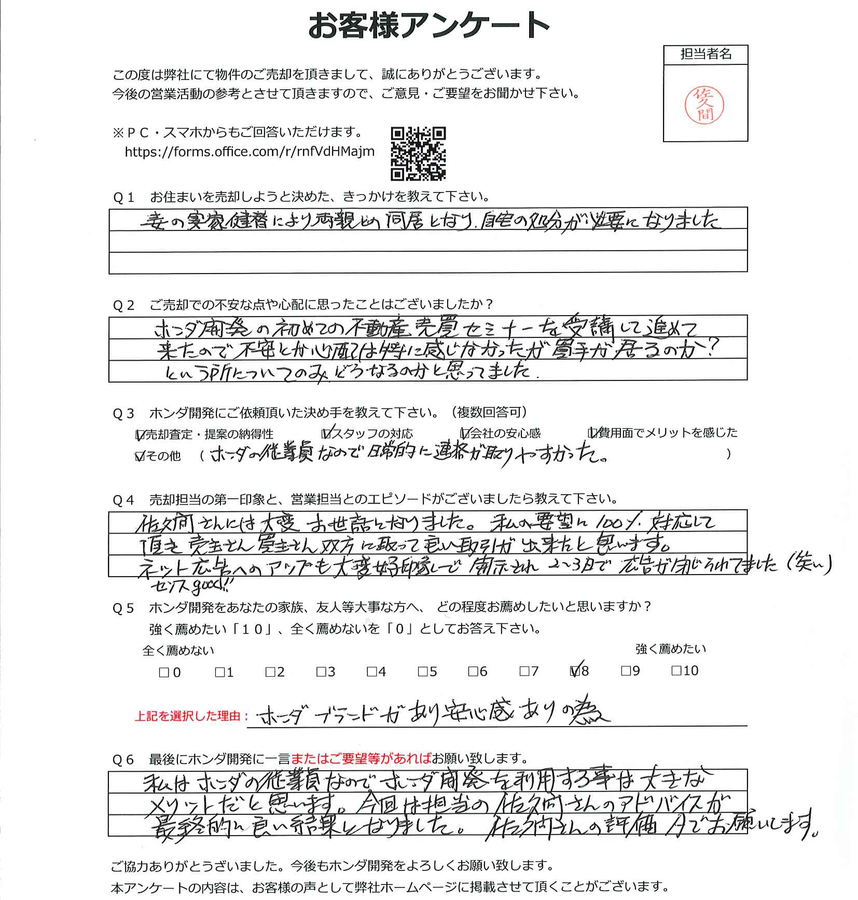 お客様アンケート
担当者名
佐久間
この度は弊社にて物件のご売却を頂きまして、誠にありがとうございます。
今後の営業活動の参考とさせて頂きますので、ご意見・ご要望をお聞かせ下さい。
※ＰＣ・スマホからもご回答いただけます。
https://forms.office.com/r/rnfVdHMajm
Ｑ１ お住まいを売却しようと決めた、きっかけを教えて下さい。
妻の実家健替により両親との同居となり、自宅の処分が必要になりました
Ｑ２ ご売却での不安な点や心配に思ったことはございましたか？
ホンダ開発の初めての不動産売買セミナーを受講して進めて
来たので不安とか心配は特に感じなかったが買手が居るのか？
という所についてのみ、どうなるのかと思ってました．
Ｑ３ ホンダ開発にご依頼頂いた決め手を教えて下さい。（複数回答可）
☑売却査定・提案の納得性 ☑スタッフの対応 ☑会社の安心感 ☑費用面でメリットを感じた
☑その他 （ ホンダの従業員なので日常的に連絡が取りやすかった。 ）
Ｑ４ 売却担当の第一印象と、営業担当とのエピソードがございましたら教えて下さい。
佐久間さんには大変お世話になりました。私の要望に100％対応して
頂き売主さん買主さん双方に取って良い取引が出来たと思います。
ネット広告へのアップも大変好印象で 開示され 2〜3日で 広告が閉じられてました（笑い）
センスgood!!
Ｑ５ ホンダ開発をあなたの家族、友人等大事な方へ、どの程度お薦めしたいと思いますか？
強く薦めたい「１０」、全く薦めないを「０」としてお答え下さい。
全く薦めない 強く薦めたい
□0 □1 □2 □3 □4 □5 □6 □7 ☑8 □9 □10
上記を選択した理由： ホンダブランドがあり安心感ありの為
Ｑ６ 最後にホンダ開発に一言またはご要望等があればお願い致します。
私はホンダの従業員なのでホンダ開発を利用する事は大きな
メリットだと思います。今回は担当の佐久間さんのアドバイスが
最終的に良い結果となりました。佐久間さんの評価Aでお願いします。
ご協力ありがとうございました。今後もホンダ開発をよろしくお願い致します。
本アンケートの内容は、お客様の声として弊社ホームページに掲載させて頂くことがございます。